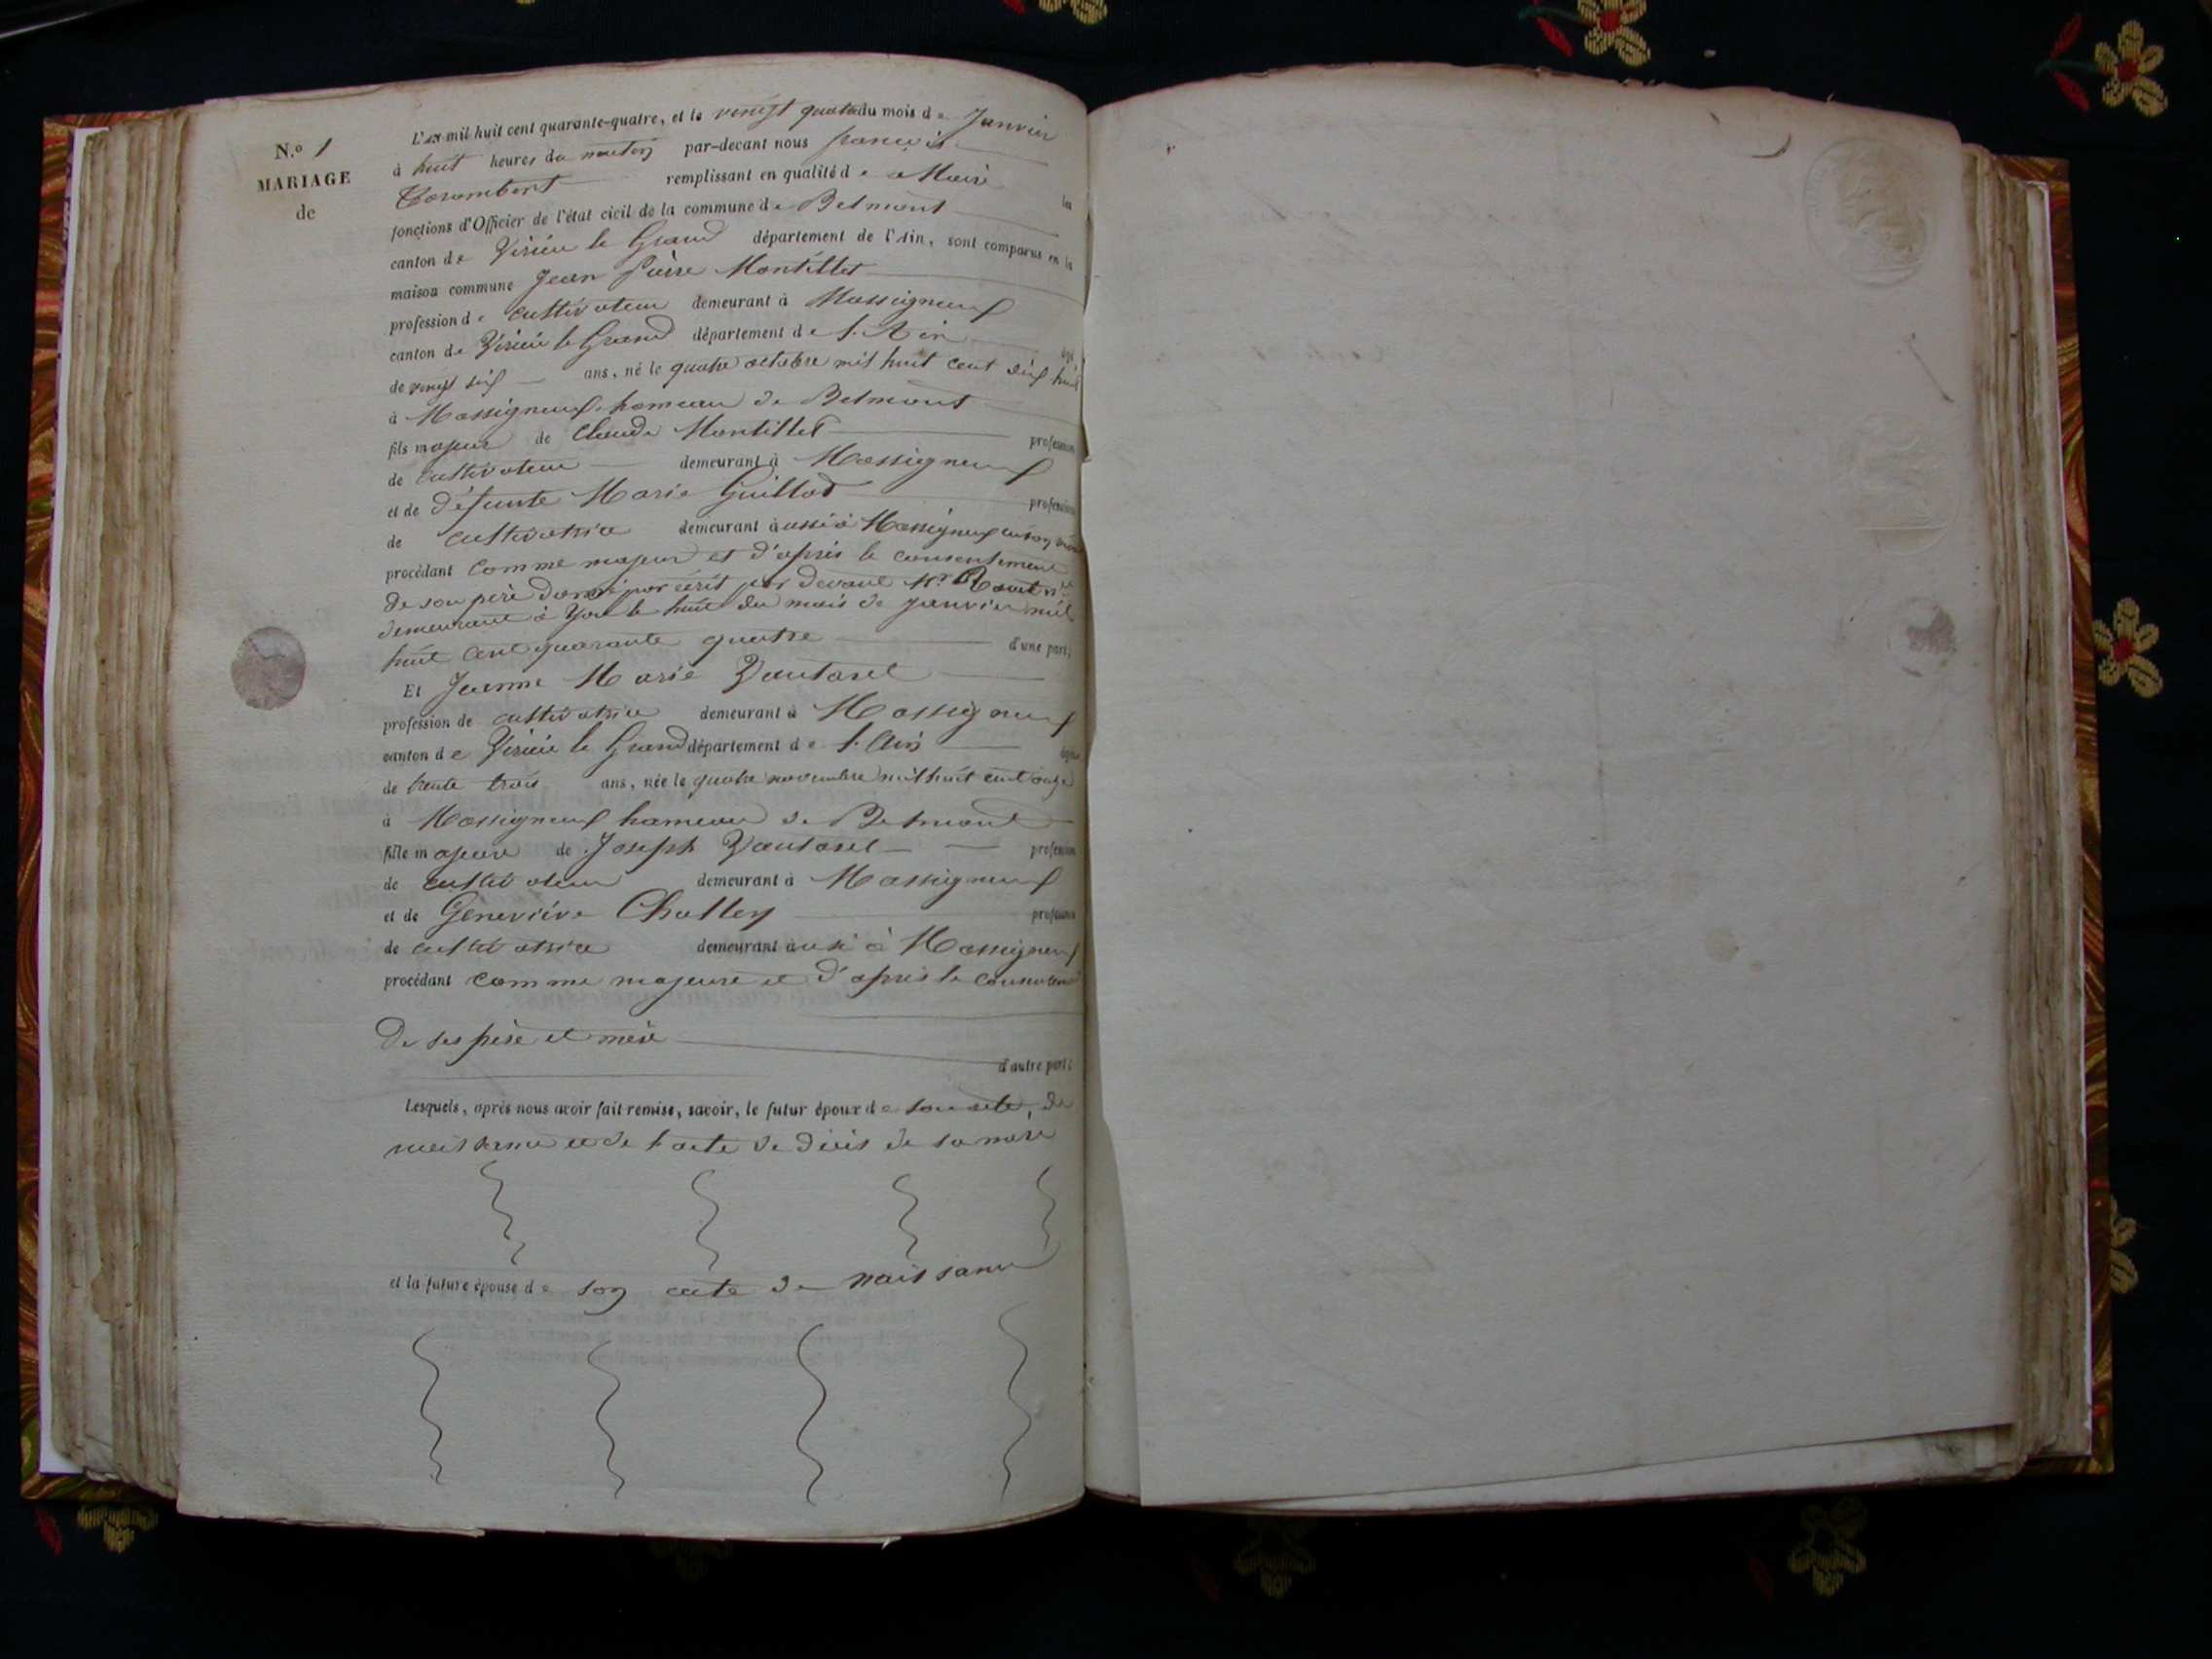 N.º 1
MARIAGE
de
L'an mil huit cent quarante-quatre, et le vingt quatre du mois de Janvier
à huit heures du matin par-devant nous françois
remplissant en qualité de Maire les
fonctions d'Officier de l'état civil de la commune de Belmont
canton de Virieu le Grand département de l'Ain, sont comparus en la
maison commune Jean Pierre Montillet
profession de cultivateur demeurant à Massignieux
canton de Virieu le Grand département de l'Ain âgé
de vingt six ans, né le quatre octobre mil huit cent dix huit
à Massignieux hameau de Belmont
fils majeur de Claude Montillet profession
de cultivateur demeurant à Massignieux
et de défunte Marie Guillod profession
de cultivatrice demeurant à aussi à Massignieux
procédant comme majeur et d'après le consentement
de son père donné par écrit par devant Mr
demeurant à Yon le huit du mois de janvier mil
huit cent quarante quatre d'une part;
Et Jeanne Marie Vautaret
profession de cultivatrice demeurant à Massignieux
canton de Virieu le Grand département de l'Ain âgée
de trente trois ans, née le quatre novembre mil huit cent onze
à Massignieux hameau de Belmont
fille majeure de Joseph Vautaret profession
de cultivateur demeurant à Massignieux
et de Geneviève Challey profession
de cultivatrice demeurant aussi à Massignieux
procédant comme majeure et d'après le consentement
de ses père et mère
d'autre part:
Lesquels, après nous avoir fait remise, savoir, le futur époux de son acte de
naissance et de l'acte de décès de sa mère
et la future épouse de son acte de naissance